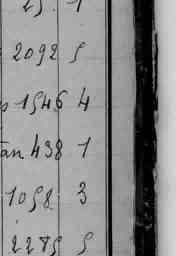 2092 5
1546 4
an. 438 1
1058 3
2285 5